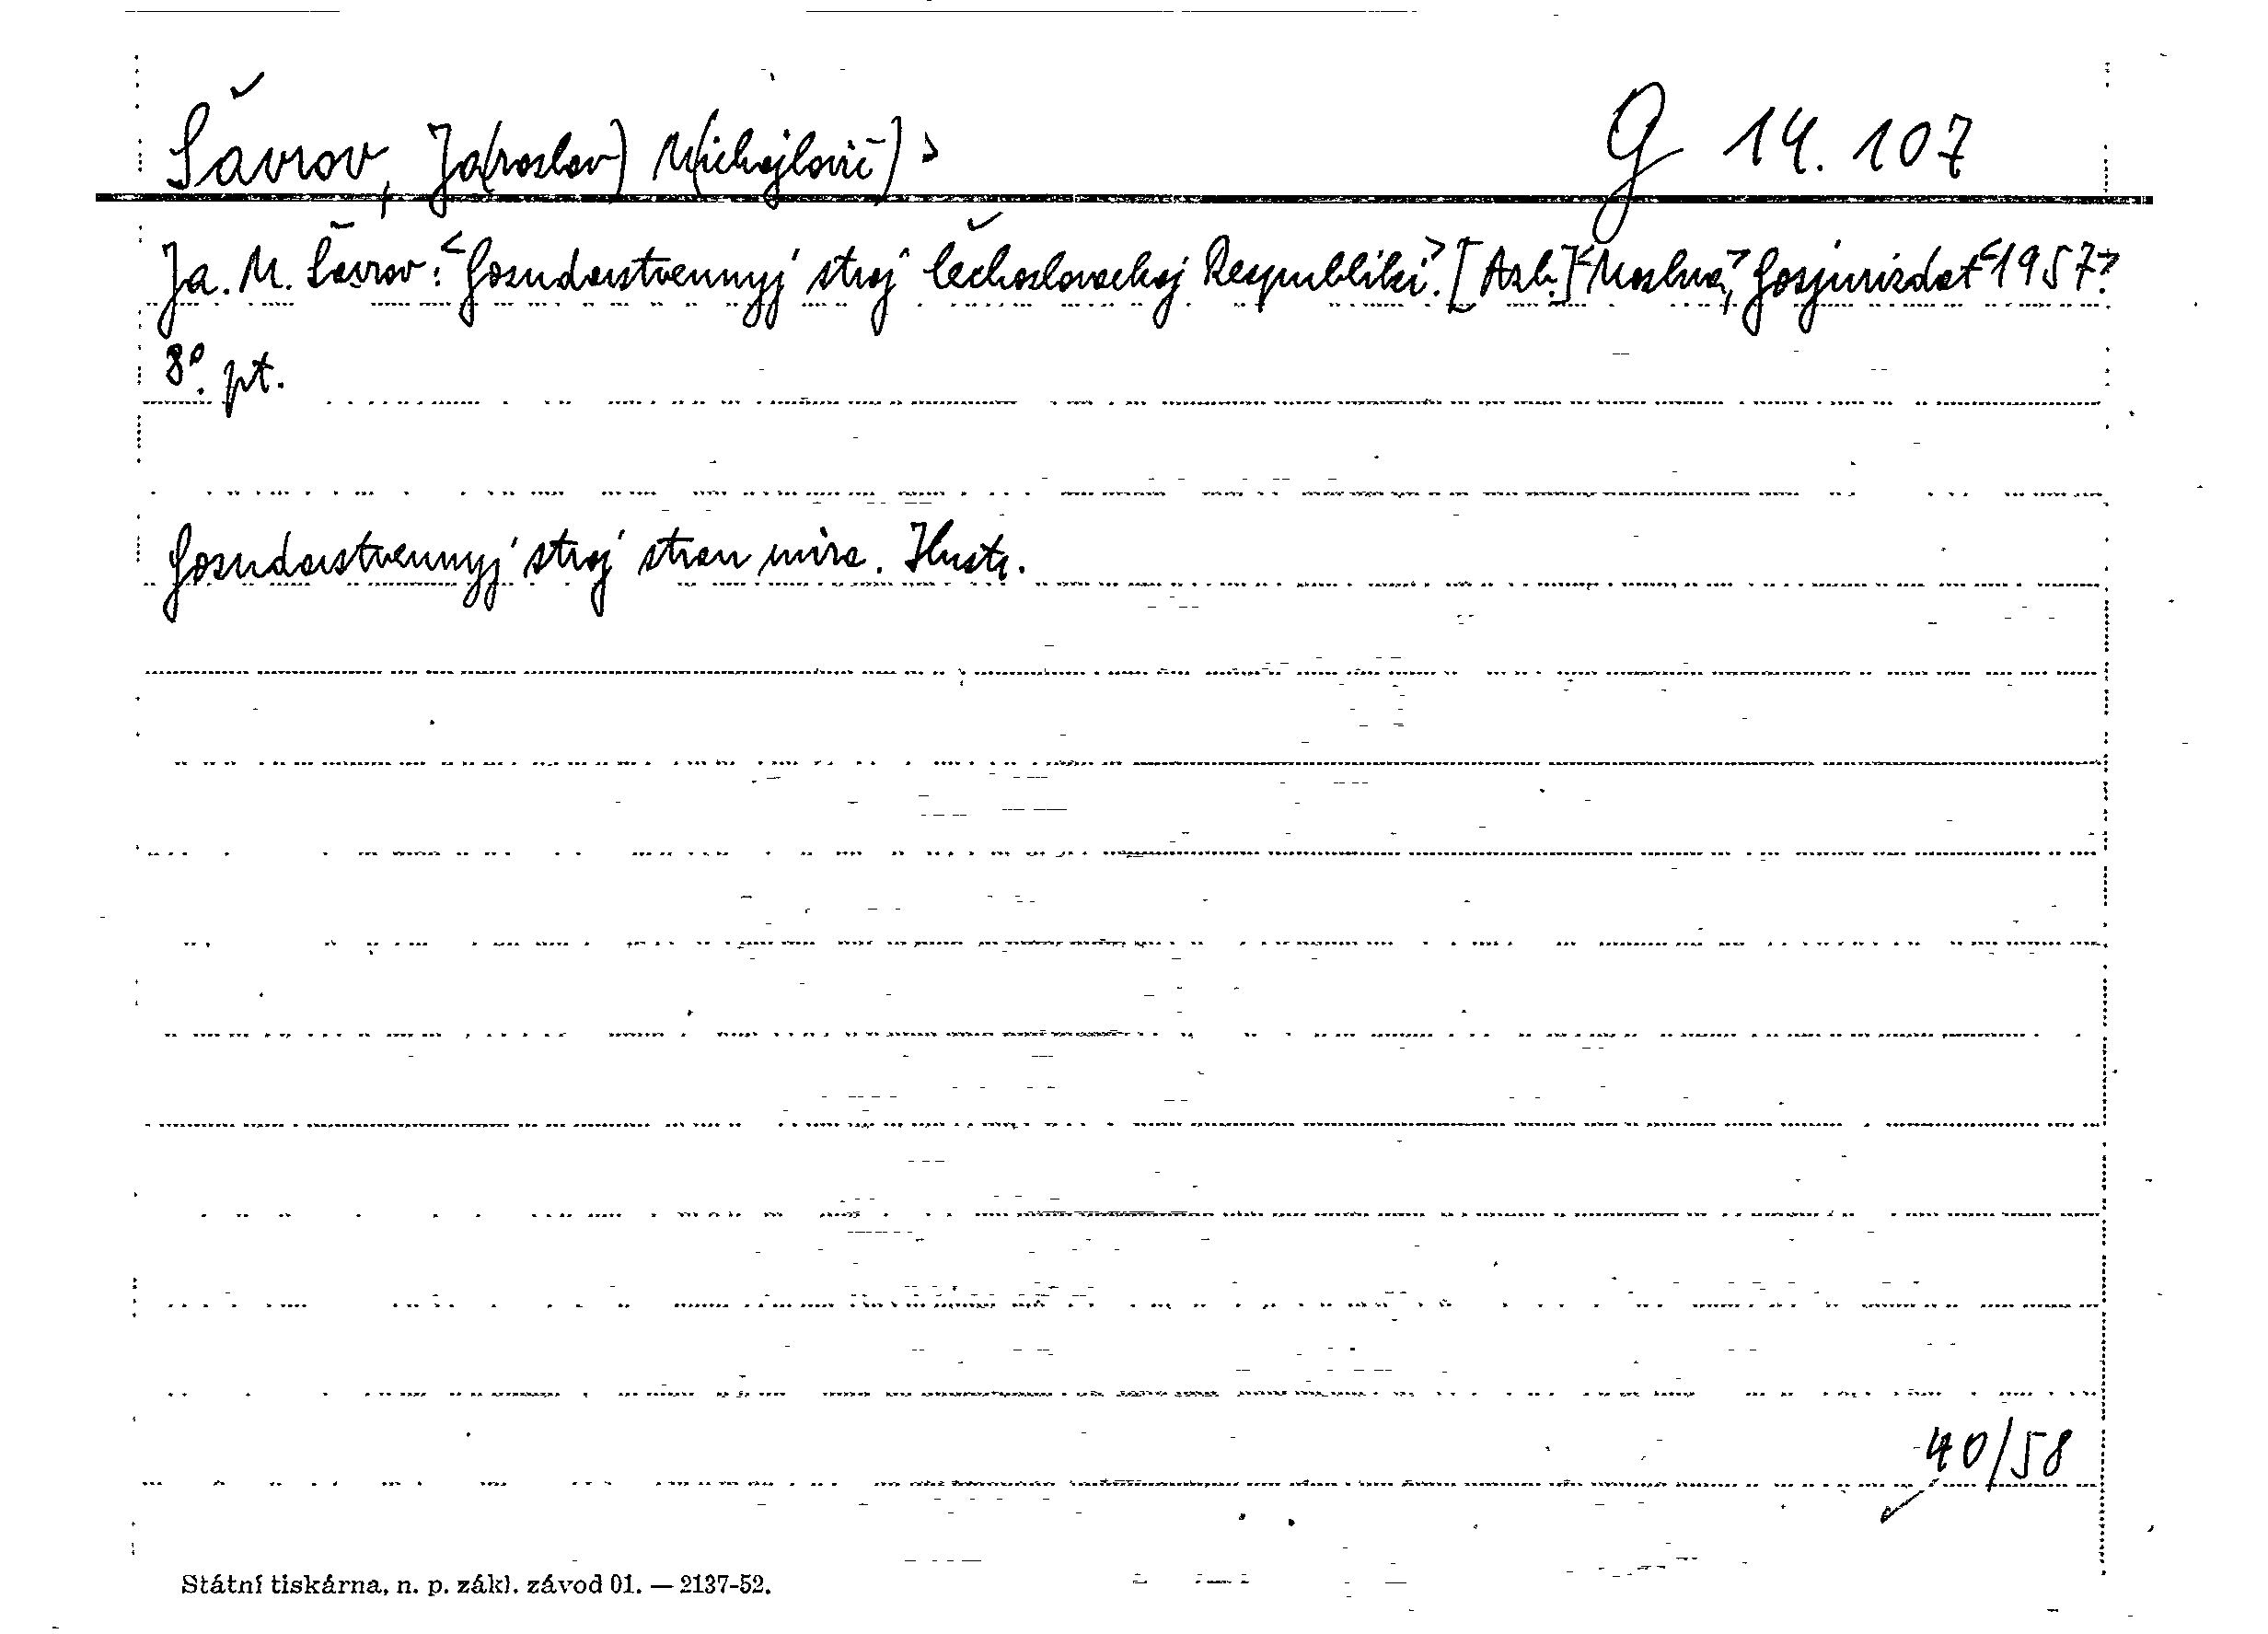 Šavrov, Ja(roslav) M(ichajlovič) > G 14.107
Ja. M. Šavrov: <Gosudarstvennyj stroj Čechoslovackoj Respubliki>. [Azb.] <Moskva>, Gosjurizdat <1957>.
8°. pt.
Gosudarstvennyj stroj stran mira. Ilustr.
40/58
Státní tiskárna, n. p. zákl. závod 01. — 2137-52.